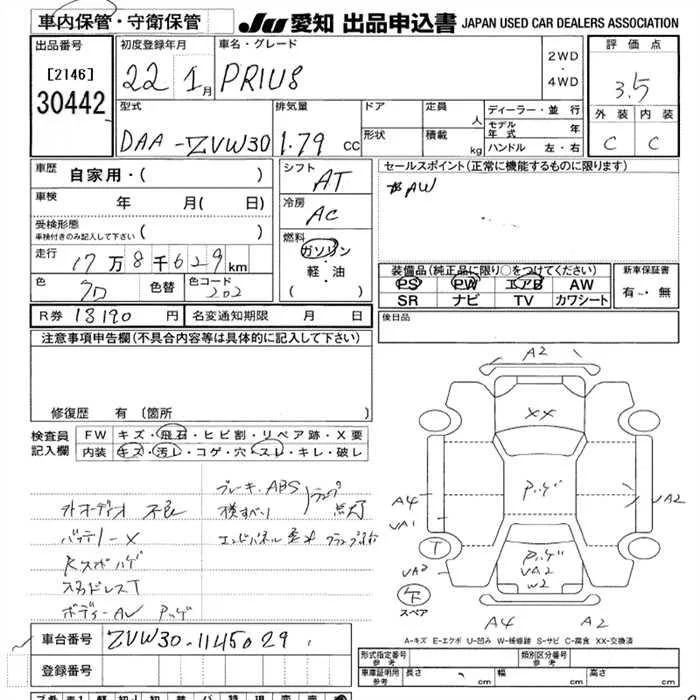 車内保管・守衛保管 JU 愛知 出品申込書 JAPAN USED CAR DEALERS ASSOCIATION
出品番号 初度登録年月 車名・グレード 評価点
[2146] 22 1月 PRIUS 2WD・4WD 3.5
30442 型式 排気量 ドア 定員 人 ディーラー・並行 外装 内装
DAA-ZVW30 1.79 CC 形状 積載 kg モデル年式 年 C C
ハンドル 左・右
車歴 自家用・( ) シフト AT セールスポイント(正常に機能するものに限ります)
車検 年 月( 日) 冷房 AC AW
受検形態 車検付きのみ記入して下さい ( ) 燃料
走行 17万8千629km ガソリン 装備品(純正品に限り○をつけてください) 新車保証書
軽・油 PS PW エアB AW 有・無
色 色替 色コード 202 ( ) SR ナビ TV カワシート
R券 13190 円 名変通知期限 月 日 後日品
注意事項申告欄(不具合内容等は具体的に記入して下さい)
A2
XX
修復歴 有 (箇所
検査員記入欄 FW キズ・飛石・ヒビ割・リペア跡・X要
内装 キズ・汚レ・コゲ・穴・スレ・キレ・破レ
ブレーキ・ABS
オーディオ 不良 横すべり ランプ点灯
バッテリーX
スタッドレスT
A4 A2
VA1
T
VA2 VA2
W2
スペア A4 A2
A-キズ E-エクボ U-凹み W-補修跡 S-サビ C-腐食 XX-交換済
車台番号 ZVW30-1145029
登録番号
形式指定番号 参考 類別区分番号 参考
車庫証明用 参考 長さ cm 幅 cm 高さ cm